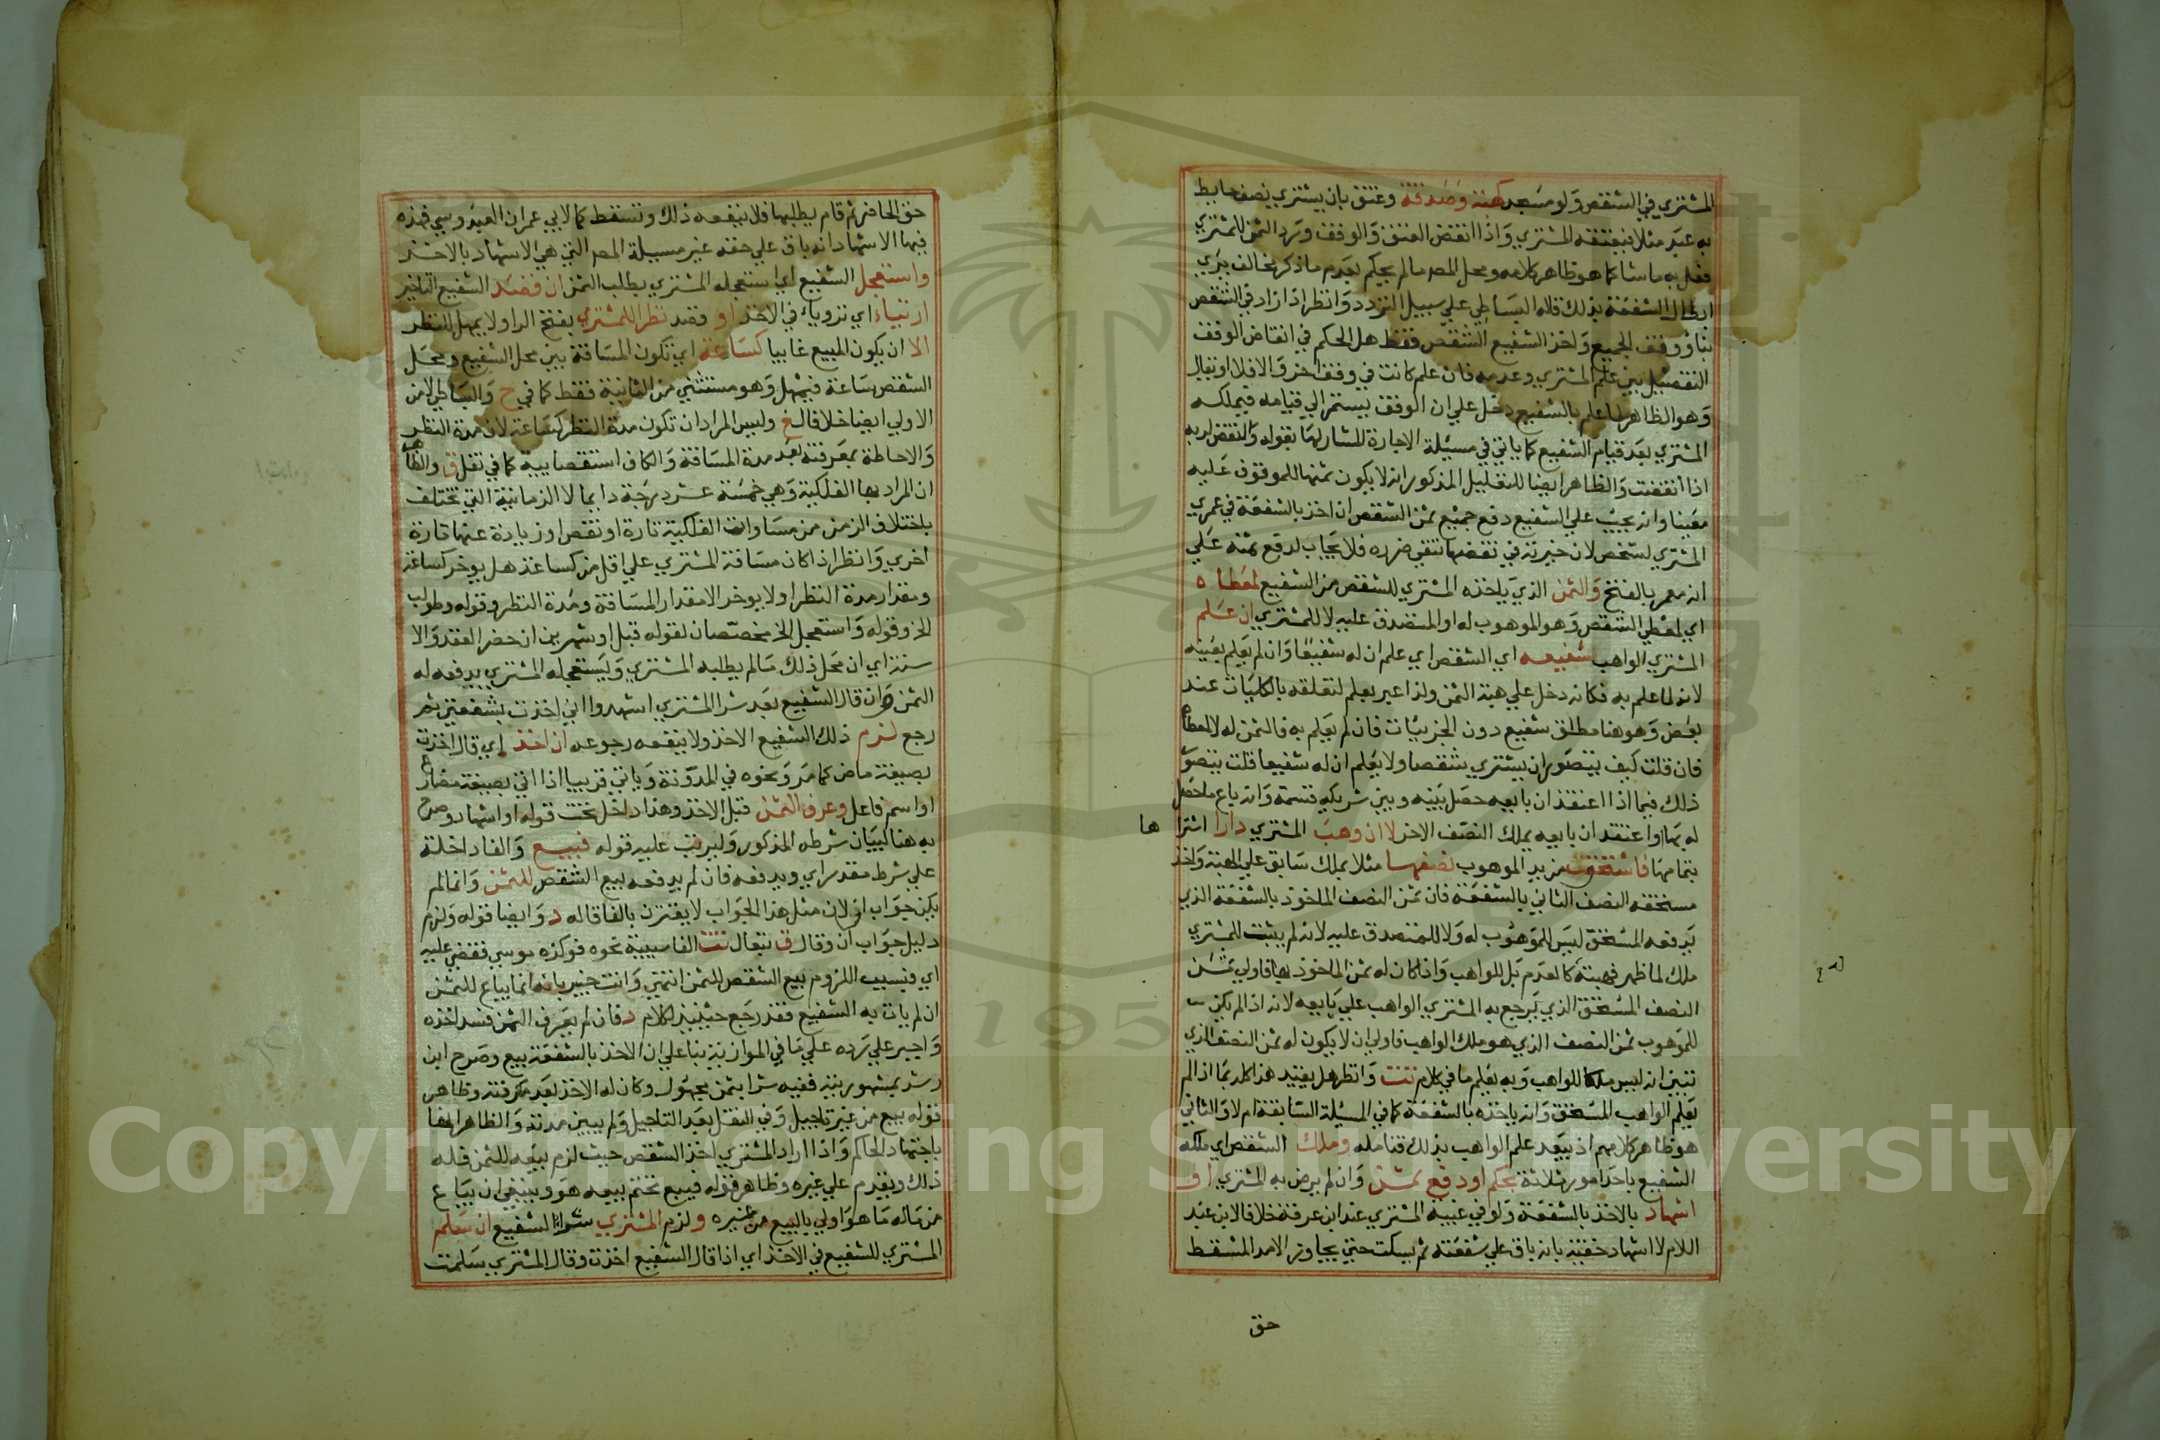 المشتري في الشقص ولو مسجد كهبة وصدقة وعتق بان يشتري نصف حايط
به عبد مثلا فيعتقه المشتري واذا انقض العتق والوقف ويرد الثمن للمشتري
فعل به ماشا كما هو ظاهر كلامه ومحل المص مالم يحكم بعدم ماذكر مخالف يري
ابطال الشفعة بذلك قاله البساطي علي سبيل التردد وانظر اذا زاد في الشقص
بناؤوقف الجميع واخذ الشفيع الشقص فقط هل الحكم في انقاض الوقف
التفصيل بين علم المشتري وعدمه فان علم كانت في وقف اخر والا فلا او يقال
وهو الظاهر لما علم بالشفيع دخل علي ان الوقف يستمر الي قيامه فيملكه
المشتري بعد قيام الشفيع كما ياتي في مسيلة الاجارة المشار لها بقوله والنقض لربه
اذا انقضت والظاهر ايضا للتعليل المذكور انه لا يكون ثمنها للموقوف عليه
معينا وانه يجب علي الشفيع دفع جميع ثمن الشقص ان اخذ بالشفعة في عمري
المشتري لشخص لان خيرته في نقضها تنفي ضرره فلا يجاب لدفع ثمنه علي
انه معمر بالفتح والثمن الذي ياخذه المشتري للشقص من الشفيع لمعطاه
اي لمعطي الشقص وهو الموهوب له او المتصدق عليه لا للمشتري ان علم
المشتري الواهب شفيعه اي الشقص اي علم ان له شفيعا وان لم يعلم بعينه
لانه لما علم به فكانه دخل علي هبة الثمن ولذا عبر بعلم لتعلقه بالكليات عند
بعض وهو هنا مطلق شفيع دون الجزييات فان لم يعلم به فالثمن له لا لمعطاه
فان قلت كيف يتصور ان يشتري شقصا ولا يعلم ان له شفيعا قلت يتصور
ذلك فيما اذا اعتقد ان بايعه حصل بينه وبين شريكه قسمة وانه باع ماحصل
له بها او اعتقد ان بايعه يملك النصف الاخر لا ان وهب المشتري دارا اشتراها
بتمامها فاستحق من يد الموهوب نصفها مثلا بملك سابق علي الهبة واخذ
مستحقه النصف الثاني بالشفعة فان ثمن النصف الماخوذ بالشفعة الذي
يدفعه المستحق ليس للموهوب له ولا للمتصدق عليه لانه لم يثبت للمشتري
ملك لما ظهر فهبته كالعدم بل للواهب واذا كان له ثمن الماخوذ بها فاولي ثمن
النصف المستحق الذي يرجع به المشتري الواهب علي بايعه لانه اذا لم يكن
للموهوب ثمن النصف الذي هو ملك الواهب فاولي ان لا يكون له ثمن النصف الذي
تبين انه ليس ملكا للواهب وبه يعلم ما في كلام تت وانظر هل يقيد هذا كله بما اذا لم
يعلم الواهب المستحق وانه ياخذه بالشفعة كما في المسيلة السابقة ام لا والثاني
هو ظاهر كلامهم اذ يبعد علم الواهب بذلك فتامله وملك الشقص اي ملكه
الشفيع باحد امور ثلاثة بحكم او دفع ثمن وان لم يرض به المشتري او
اشهاد بالاخذ بالشفعة ولو في غيبة المشتري عند ابن عرفة خلافا لابن عبد
السلام لا اشهاد خفية بانه باق علي شفعته ثم يسكت حتي يجاوز الامد المسقط
حق
حق الحاضر ثم قام يطلبها فلا ينفعه ذلك وتسقط كما لابي عمران العبدوسي فهذه
فيها الاشهاد انه باق علي حقه غير مسيلة المص التي هي الاشهاد بالاخذ
واستعجل الشفيع اي استعجله المشتري بطلب الثمن ان قصد الشفيع التاخير
ارتياء اي ترويا في الاخذ او قصد نظرا للمشتري بفتح الرا ولا يمهل للنظر
الا ان يكون المبيع غايبا كساعة اي تكون المسافة بين محل الشفيع ومحل
الشقص ساعة فيمهل وهو مستثني من الثانية فقط كما في ح والبساطي لا من
الاولي ايضا خلافا لغ وليس المراد ان تكون مدة النظر كساعة لان مدة النظر
والاحاطة بمعرفته بعد مدة المسافة والكاف استقصاييه كما في نقل ق والظاهر
ان المراد بها الفلكية وهي خمسة عشر درجة دايما لا الزمانية التي تختلف
باختلاف الزمن من مساواة الفلكية تارة او نقص او زيادة عنها تارة
اخري وانظر اذا كان مسافة المشتري علي اقل من كساعة هل يوخر كساعة
ومقدار مدة النظر او لا يوخر الا مقدار المسافة ومدة النظر وقوله وطولب
الخ وقوله واستعجل الخ مخصصان لقوله قبل او شهرين ان حضر العقد والا
سنة اي ان محل ذلك مالم يطلبه المشتري وليستعجله المشتري بدفعه له
الثمن وان قال الشفيع بعد شرا المشتري اشهدوا اني اخذت بشفعتي ثم
رجع لزم ذلك الشفيع الاخذ ولا ينفعه رجوعه ان اخذ اي قال اخذت
بصيغة ماض كما مر ونحوه في المدونة وياتي قريبا اذا اتي بصيغة مضارع
او اسم فاعل وعرف الثمن قبل الاخذ وهذا داخل تحت قوله او اشهاد وصرح
به هنا لبيان شرطه المذكور وليرتب عليه قوله فبيع والفا داخلة
علي شرط مقدر اي ويدفعه فان لم يدفعه بيع الشقص للثمن وانما لم
يكن جواب ان لان مثل هذا الجواب لا يقترن بالفا قاله د وايضا قوله ولزم
دليل جواب ان وقال ق تبعا ل تت الفا سببية نحوه فوكزه موسي فقضي عليه
اي فبسبب اللزوم بيع الشقص للثمن انتهي وانت خبير بانه انما يباع للثمن
ان لم يات به الشفيع فقد رجع حينيذ لكلام د فان لم يعرف الثمن فسد اخذه
واجبر علي رده علي ما في الموازية بنا علي ان الاخذ بالشفعة بيع وصرح ابن
رشد بمشهوريته ففيه شرا بثمن مجهول وكان له الاخذ بعد معرفته وظاهر
قوله بيع من غير تاجيل وفي النقل بعد التاجيل ولم يبين مدته والظاهر انها
باجتهاد الحاكم واذا اراد المشتري اخذ الشقص حيث لزم بيعه للثمن فله
ذلك ويقدم علي غيره وظاهر قوله فبيع تحتم بيعه هو وينبغي ان يباع
من ماله ما هو اولي بالبيع من غيره ولزم المشتري شراء الشفيع ان سلم
المشتري للشفيع في الاخذ اي اذا قال الشفيع اخذت وقال المشتري سلمت